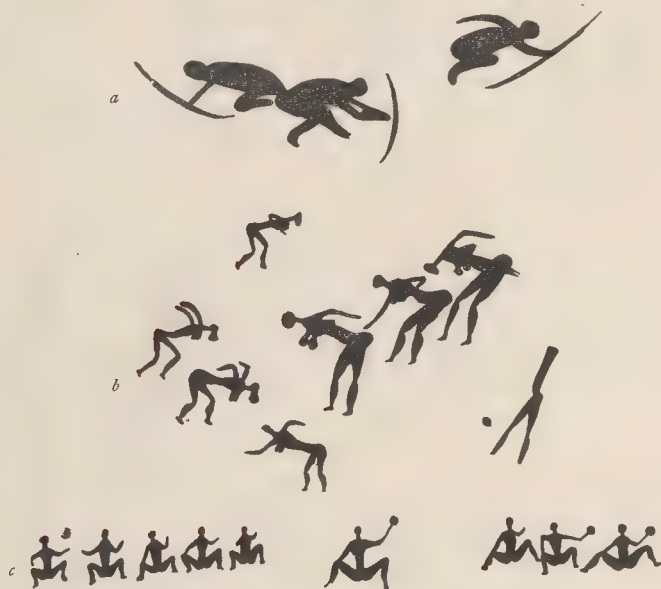 a
b
c